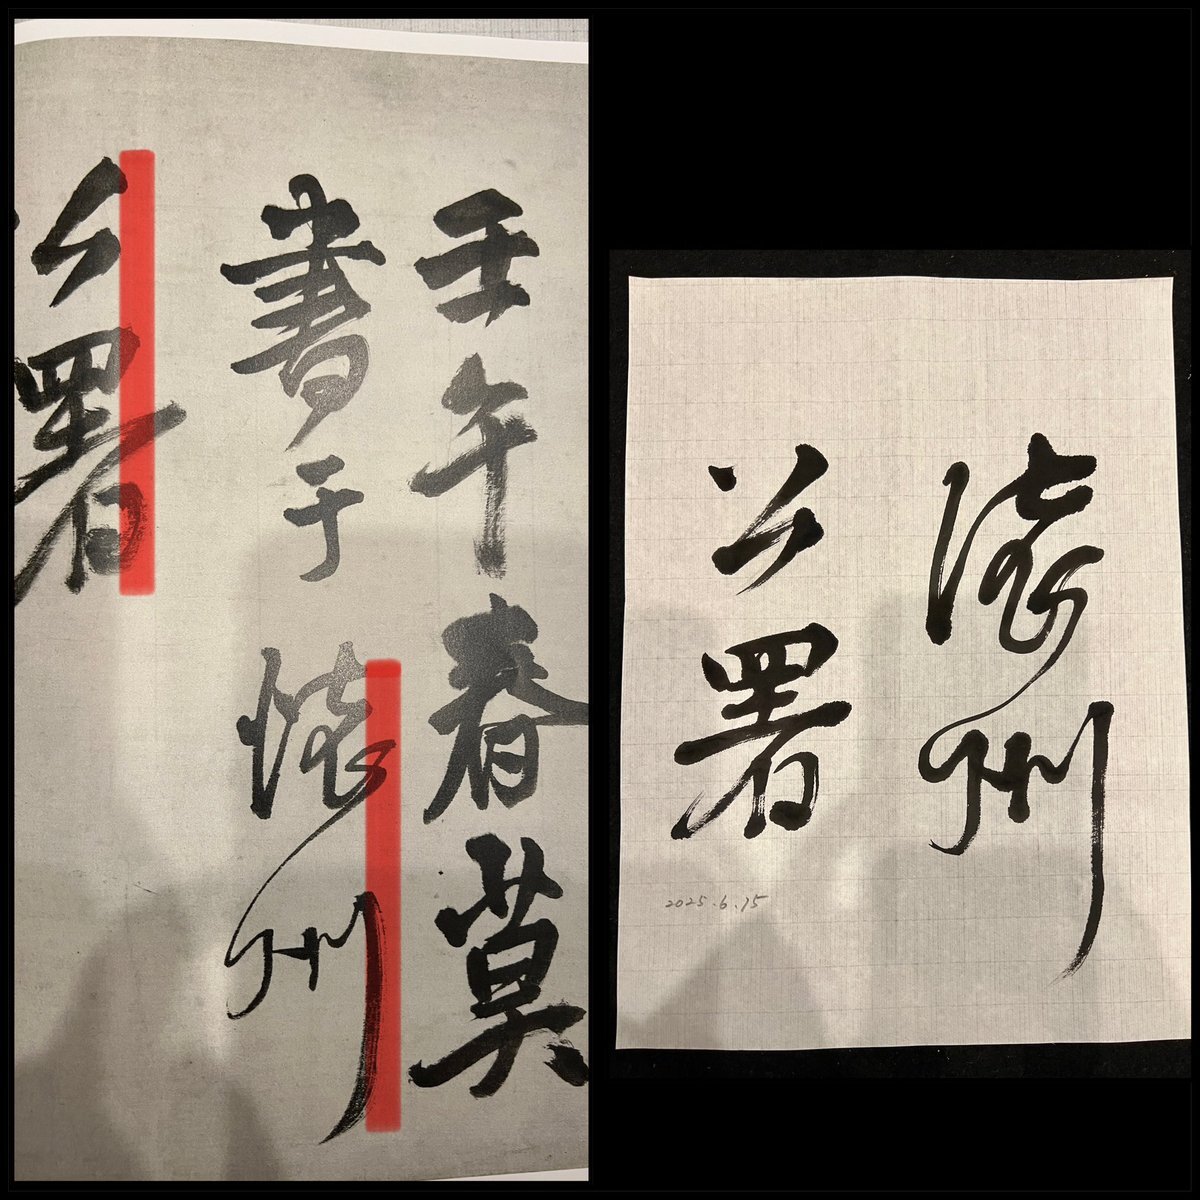 壬午春莫
書于懷州
公署
懷州
公署
2025.6.15